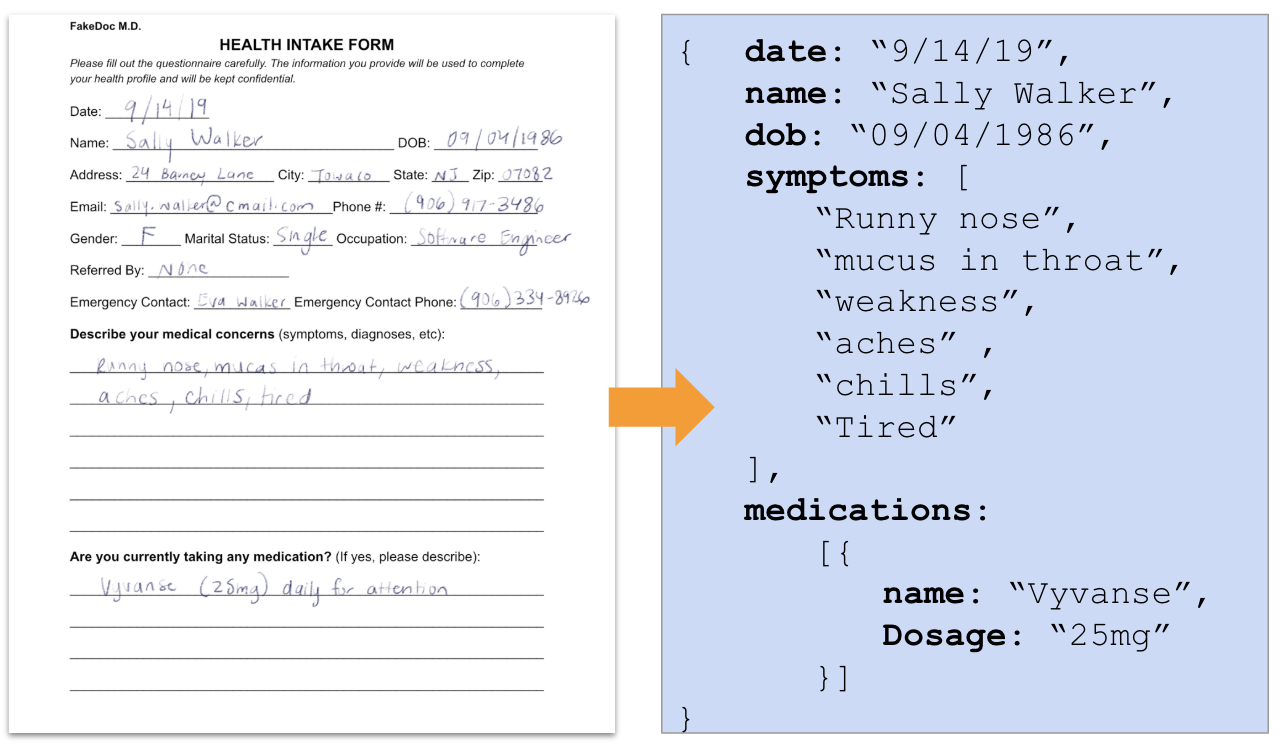 FakeDoc M.D.
HEALTH INTAKE FORM
Please fill out the questionnaire carefully. The information you provide will be used to complete
your health profile and will be kept confidential.
Date: 9/14/19
Name: Sally Walker DOB: 09/04/1986
Address: 24 Barney Lane City: Towaco State: NJ Zip: 07082
Email: Sally.walker@cmail.com Phone #: (906) 917-3486
Gender: F Marital Status: Single Occupation: Software Engineer
Referred By: None
Emergency Contact: Eva Walker Emergency Contact Phone: (906)334-8926
Describe your medical concerns (symptoms, diagnoses, etc):
Runny nose, mucas in throat, weakness,
aches, chills, tired
Are you currently taking any medication? (If yes, please describe):
Vyvanse (25mg) daily for attention
{ date: “9/14/19”,
name: “Sally Walker”,
dob: “09/04/1986”,
symptoms: [
“Runny nose”,
“mucus in throat”,
“weakness”,
“aches” ,
“chills”,
“Tired”
],
medications:
[{
name: “Vyvanse”,
Dosage: “25mg”
}]
}